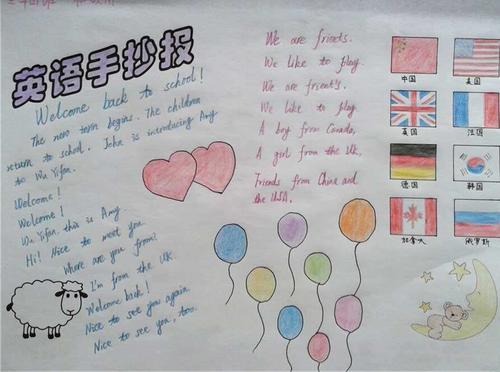 英语手抄报
Welcome back to school!
The new term begins. The children
return to school. John is introducing Amy
to Wu Yifan.
Welcome!
Welcome!
Wu Yifan, this is Amy
Hi! Nice to meet you
Where are you from?
I'm from the UK.
Welcome back!
Nice to see you again.
Nice to see you, too.
We are friends.
We like to play.
We are friends.
We like to play.
A boy from Canada,
A girl from the UK,
Friends from China and
the USA.
中国
美国
英国
法国
德国
韩国
加拿大
俄罗斯